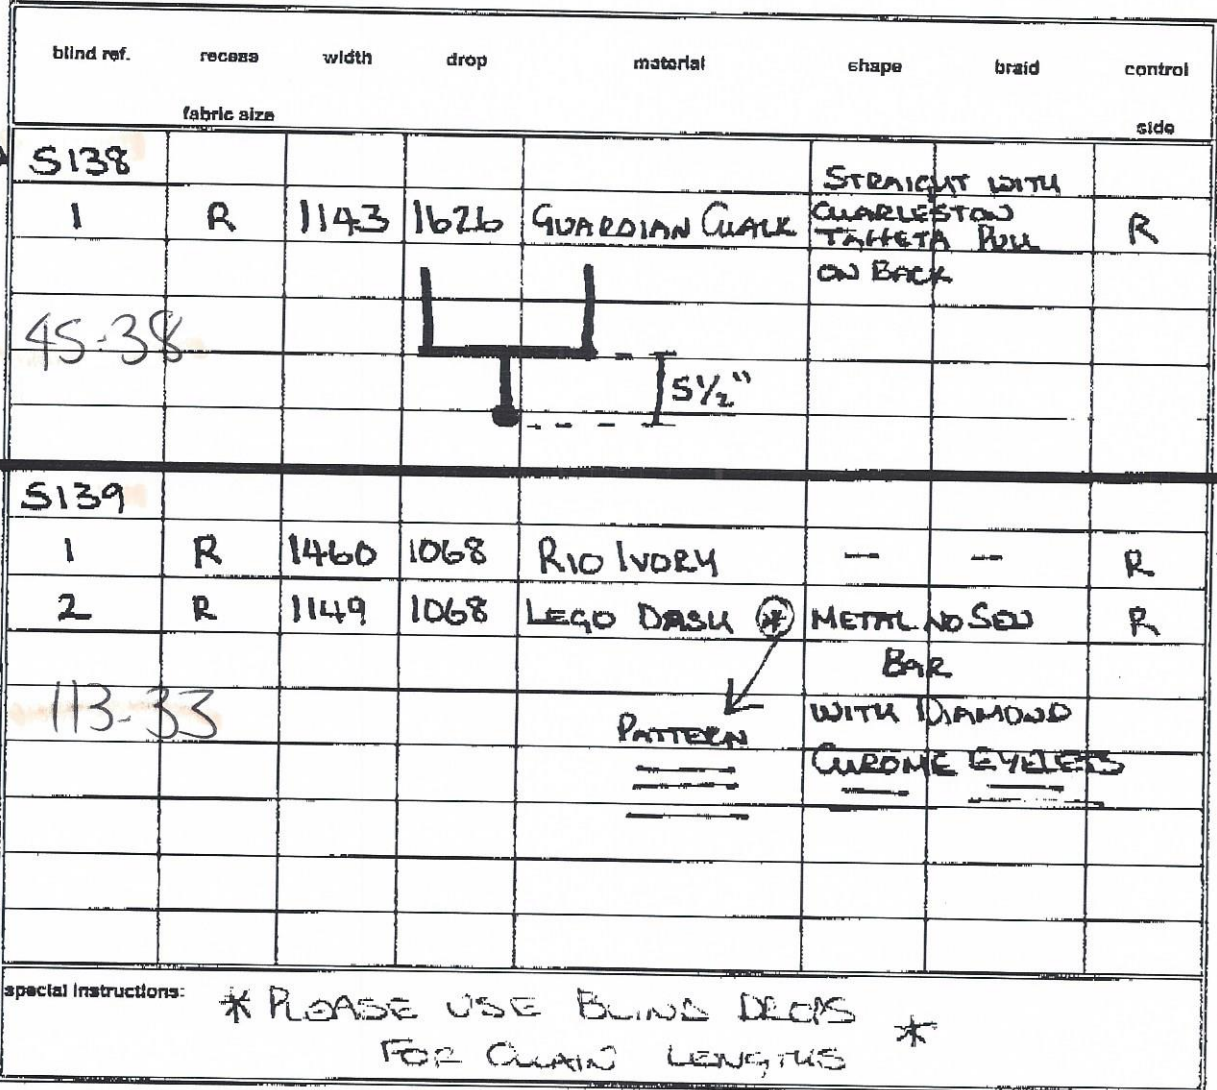 blind ref. recess width drop material shape braid control
fabric size side
S138
1 R 1143 1626 GUARDIAN CHALK STRAIGHT WITH
CHARLESTON R
TAFFETA PULL
ON BACK
45-38
5½"
S139
1 R 1460 1068 RIO IVORY — — R
2 R 1149 1068 LEGO DASH * METAL NO SEW R
BAR
113-33 WITH DIAMOND
PATTERN
CHROME EYELETS
special instructions: * PLEASE USE BLIND DROPS *
FOR CHAIN LENGTHS